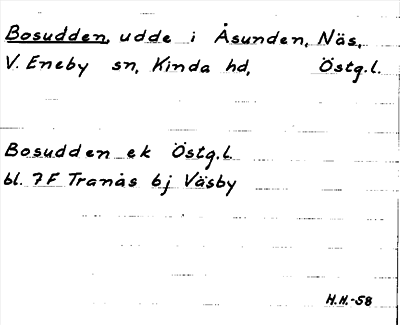 Bosudden, udde i Åsunden, Näs,
V. Eneby sn, Kinda hd, Östg.l.
Bosudden ek Östg.l.
bl. 7F Tranås 6j Väsby
H.H.-58